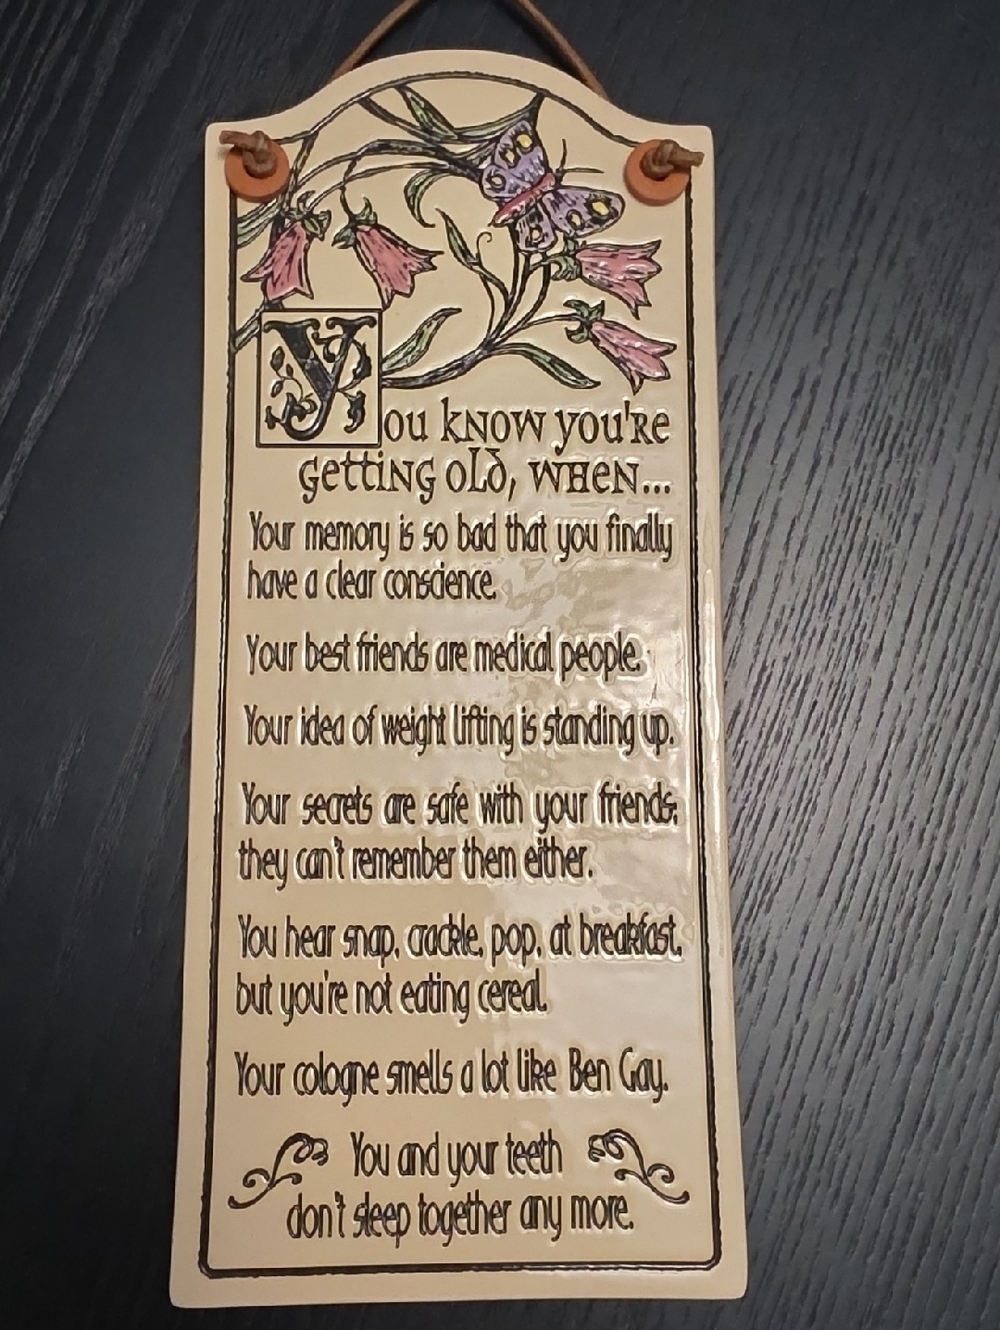 You know you're
getting old, when...
Your memory is so bad that you finally
have a clear conscience.
Your best friends are medical people.
Your idea of weight lifting is standing up.
Your secrets are safe with your friends;
they can't remember them either.
You hear snap, crackle, pop, at breakfast,
but you're not eating cereal.
Your cologne smells a lot like Ben Gay.
You and your teeth
don't sleep together any more.